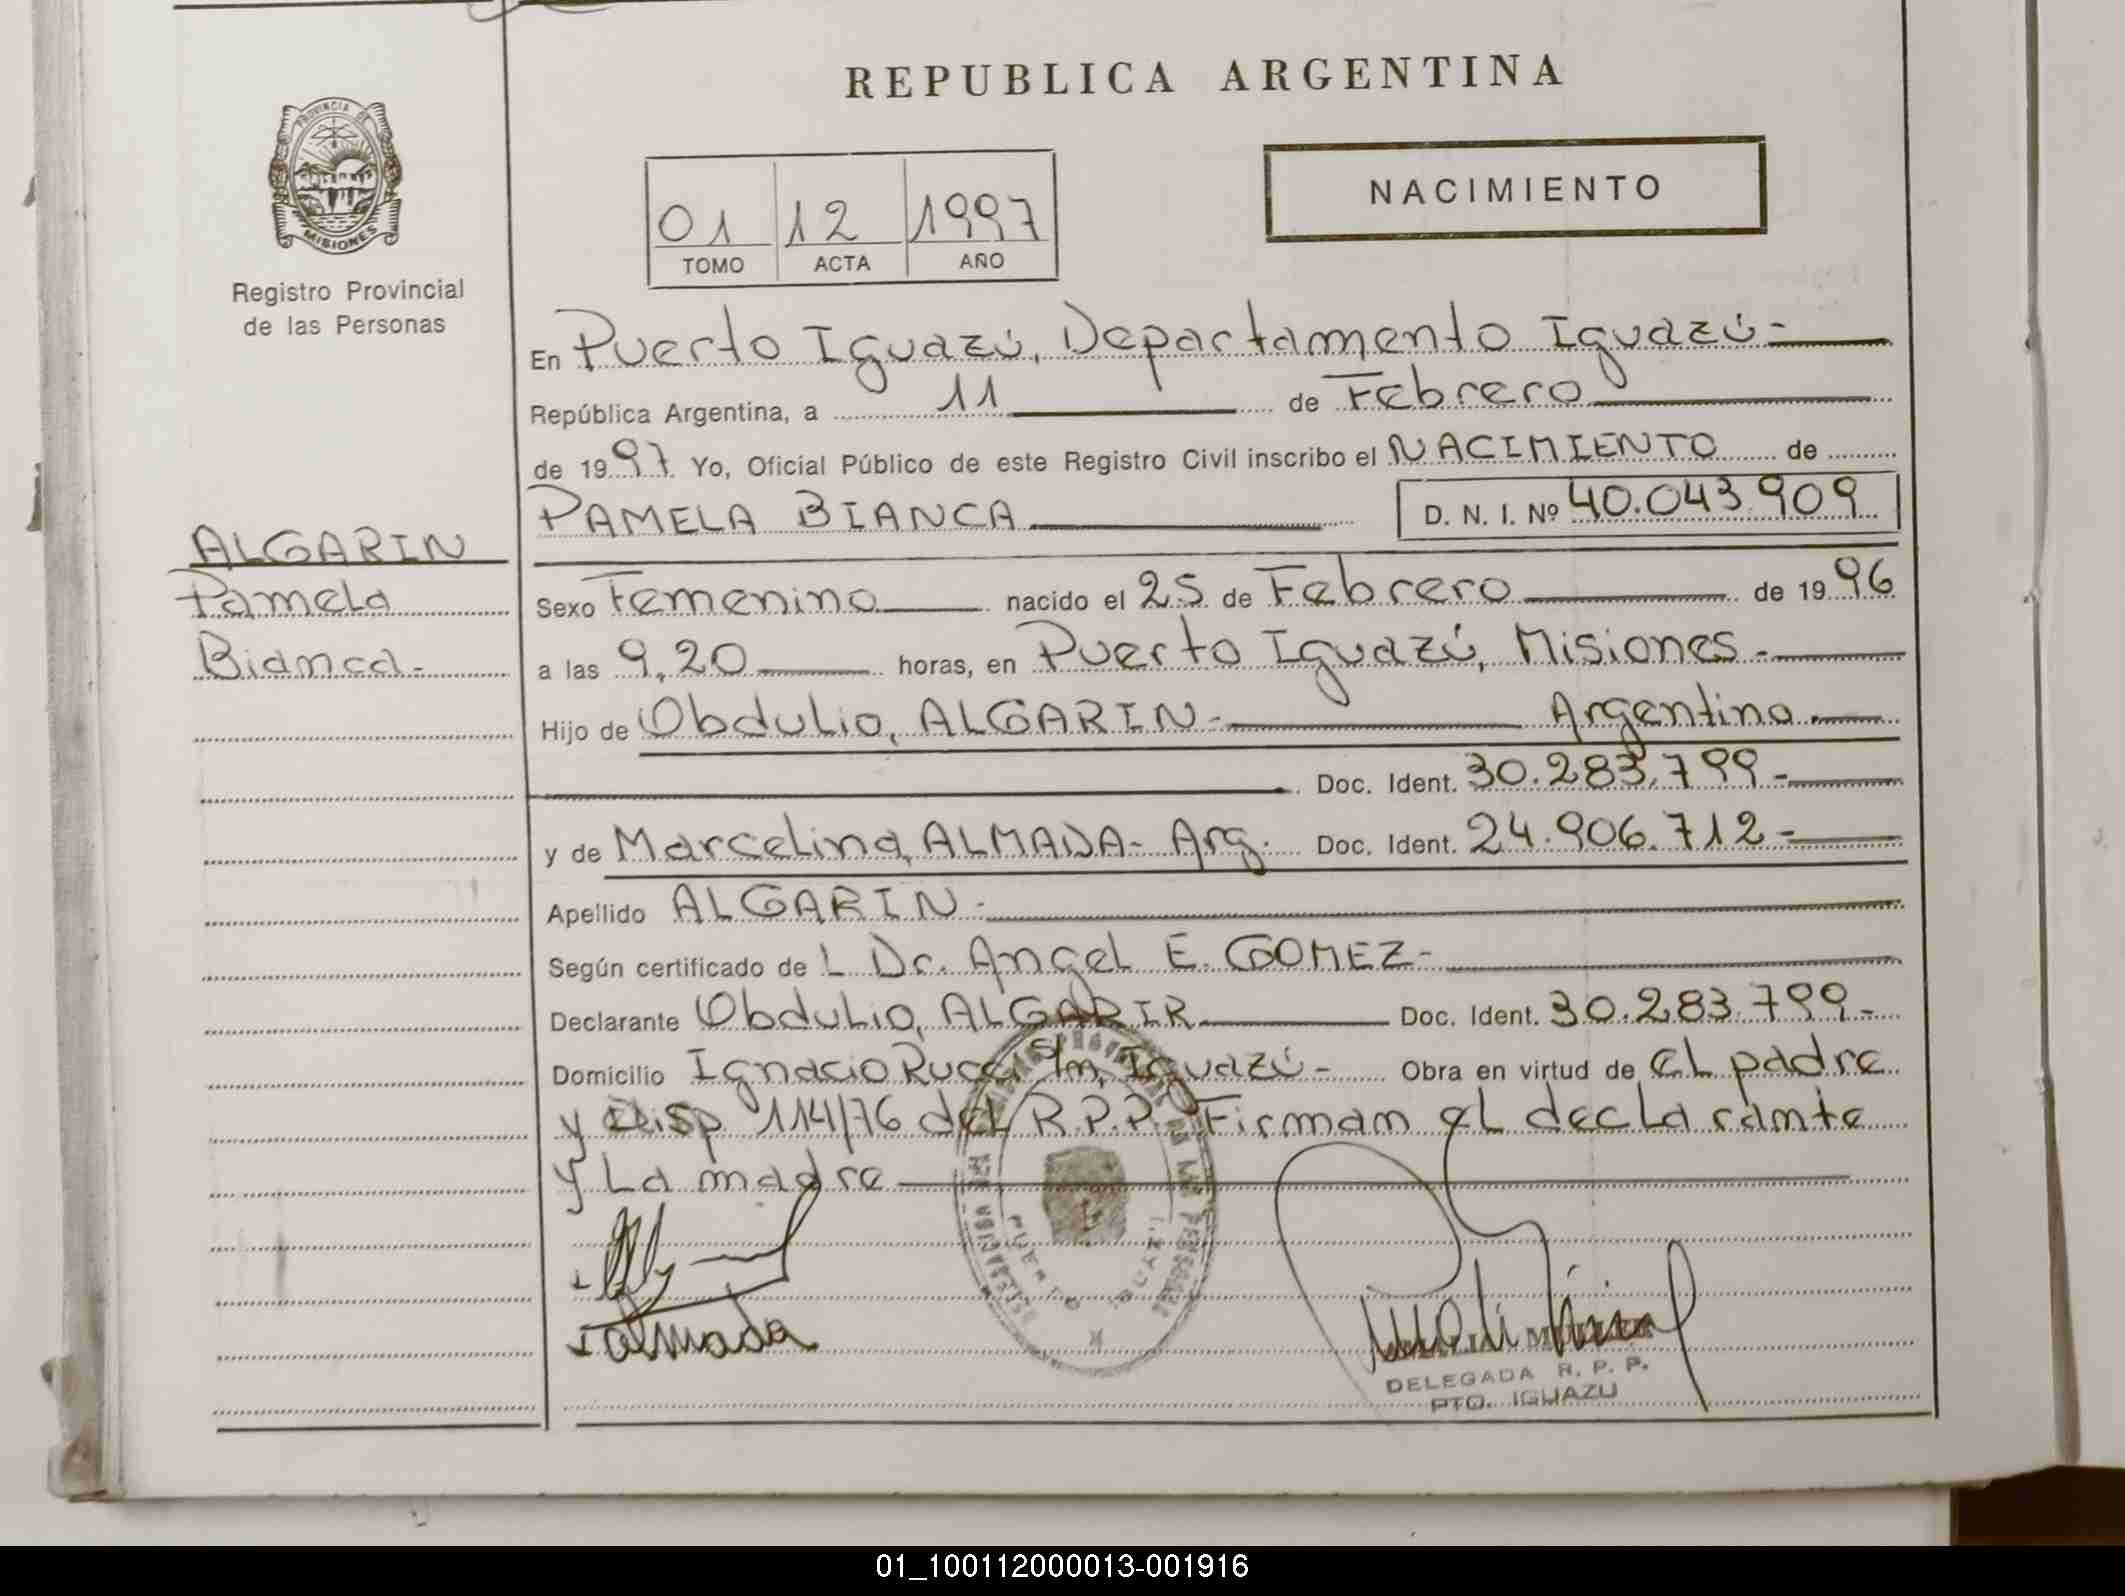 REPUBLICA ARGENTINA
PROVINCIA DE
MISIONES
Registro Provincial
de las Personas
01 12 1997
TOMO ACTA AÑO
NACIMIENTO
En Puerto Iguazú, Departamento Iguazú-
República Argentina, a 11 de Febrero
de 1997 Yo, Oficial Público de este Registro Civil inscribo el NACIMIENTO de
PAMELA BIANCA D. N. I. Nº 40.043.909
ALGARIN
Pamela
Bianca-
Sexo Femenino nacido el 25 de Febrero de 1996
a las 9,20 horas, en Puerto Iguazú, Misiones-
Hijo de Obdulio, ALGARIN- Argentino
Doc. Ident. 30.283.799-
y de Marcelina, ALMADA- Arg. Doc. Ident. 24.906.712-
Apellido ALGARIN-
Según certificado de L Dr. Angel E. GOMEZ-
Declarante Obdulio, ALGARIR Doc. Ident. 30.283.799-
Domicilio Ignacio Rucci S/n, Iguazú- Obra en virtud de el padre
y Disp 114/76 del R.P.P. Firman el declarante
y La madre
almada
PUERTO IGUAZU
DELEGADA R. P. P.
PTO. IGUAZU
01_100112000013-001916